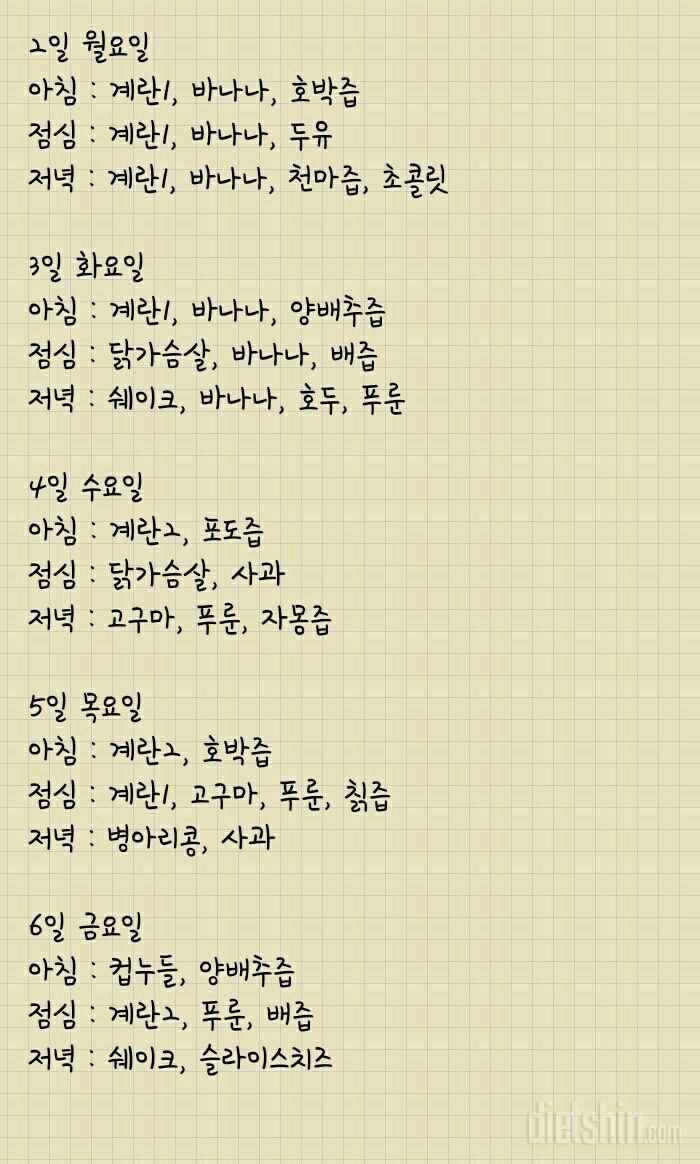 2일 월요일
아침 : 계란1, 바나나, 호박즙
점심 : 계란1, 바나나, 두유
저녁 : 계란1, 바나나, 천마즙, 초콜릿
3일 화요일
아침 : 계란1, 바나나, 양배추즙
점심 : 닭가슴살, 바나나, 배즙
저녁 : 쉐이크, 바나나, 호두, 푸룬
4일 수요일
아침 : 계란2, 포도즙
점심 : 닭가슴살, 사과
저녁 : 고구마, 푸룬, 자몽즙
5일 목요일
아침 : 계란2, 호박즙
점심 : 계란1, 고구마, 푸룬, 칡즙
저녁 : 병아리콩, 사과
6일 금요일
아침 : 컵누들, 양배추즙
점심 : 계란2, 푸룬, 배즙
저녁 : 쉐이크, 슬라이스치즈
dietshin.com